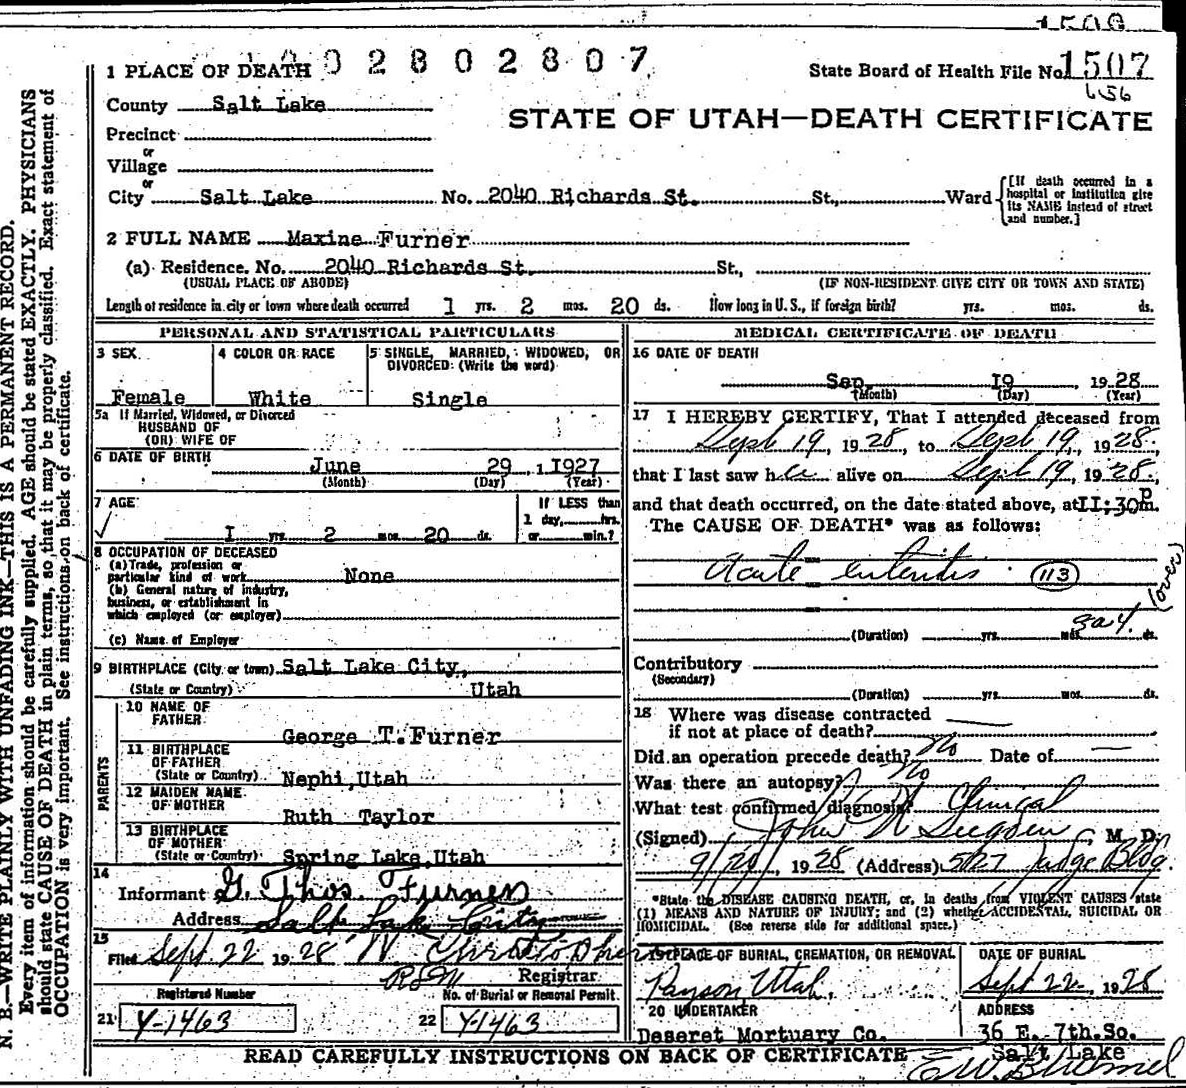 1508
0 0 2 8 0 2 8 0 7
1 PLACE OF DEATH
State Board of Health File No. 1507
656
County Salt Lake
STATE OF UTAH—DEATH CERTIFICATE
Precinct
or
Village
or
City Salt Lake No. 2040 Richards St. St., Ward
[If death occurred in a hospital or institution give its NAME instead of street and number.]
2 FULL NAME Maxine Furner
(a) Residence. No. 2040 Richards St. St.,
(USUAL PLACE OF ABODE) (IF NON-RESIDENT GIVE CITY OR TOWN AND STATE)
Length of residence in city or town where death occurred 1 yrs. 2 mos. 20 ds. How long in U. S., if foreign birth? yrs. mos. ds.
PERSONAL AND STATISTICAL PARTICULARS
3 SEX
Female
4 COLOR OR RACE
White
5 SINGLE, MARRIED, WIDOWED, OR DIVORCED: (Write the word)
Single
5a If Married, Widowed, or Divorced
HUSBAND OF
(OR) WIFE OF
6 DATE OF BIRTH June 29 1 1927
(Month) (Day) (Year)
7 AGE
If LESS than
1 day, hrs.
I yrs. 2 mos. 20 ds. or min.?
8 OCCUPATION OF DECEASED
(a) Trade, profession or
particular kind of work None
(b) General nature of industry,
business, or establishment in
which employed (or employer)
(c) Name of Employer
9 BIRTHPLACE (City or town) Salt Lake City,
(State or Country) Utah
PARENTS
10 NAME OF
FATHER
George T. Furner
11 BIRTHPLACE
OF FATHER
(State or Country) Nephi, Utah
12 MAIDEN NAME
OF MOTHER
Ruth Taylor
13 BIRTHPLACE
OF MOTHER
(State or Country) Spring Lake, Utah
14
Informant G. Thos. Furner
Address Salt Lake City
15
Filed Sept. 22 1928
Registrar
Registered Number No. of Burial or Removal Permit
21 Y-1463 22 Y-1463
MEDICAL CERTIFICATE OF DEATH
16 DATE OF DEATH
Sep. I9 , 1928
(Month) (Day) (Year)
17 I HEREBY CERTIFY, That I attended deceased from
Sept 19, 1928, to Sept 19, 1928,
that I last saw her alive on Sept 19, 1928,
and that death occurred, on the date stated above, at II:30 p m.
The CAUSE OF DEATH* was as follows:
Acute enteritis. (113)
(over)
(Duration) yrs. mos. 3 ds.
Contributory
(Secondary)
(Duration) yrs. mos. ds.
18 Where was disease contracted
if not at place of death?
Did an operation precede death? No Date of —
Was there an autopsy? No
What test confirmed diagnosis? Clinical
(Signed) John N Sugden, M. D.
9/20, 1928 (Address) 527 Judge Bldg.
*State the DISEASE CAUSING DEATH, or, in deaths from VIOLENT CAUSES state
(1) MEANS AND NATURE OF INJURY; and (2) whether ACCIDENTAL, SUICIDAL OR
HOMICIDAL. (See reverse side for additional space.)
19 PLACE OF BURIAL, CREMATION, OR REMOVAL
Payson Utah.
DATE OF BURIAL
Sept 22, 1928
20 UNDERTAKER
Deseret Mortuary Co.
ADDRESS
36 E. 7th. So.
Salt Lake
READ CAREFULLY INSTRUCTIONS ON BACK OF CERTIFICATE
N. B.—WRITE PLAINLY WITH UNFADING INK—THIS IS A PERMANENT RECORD.
Every item of information should be carefully supplied. AGE should be stated EXACTLY. PHYSICIANS
should state CAUSE OF DEATH in plain terms, so that it may be properly classified. Exact statement of
OCCUPATION is very important. See instructions on back of certificate.